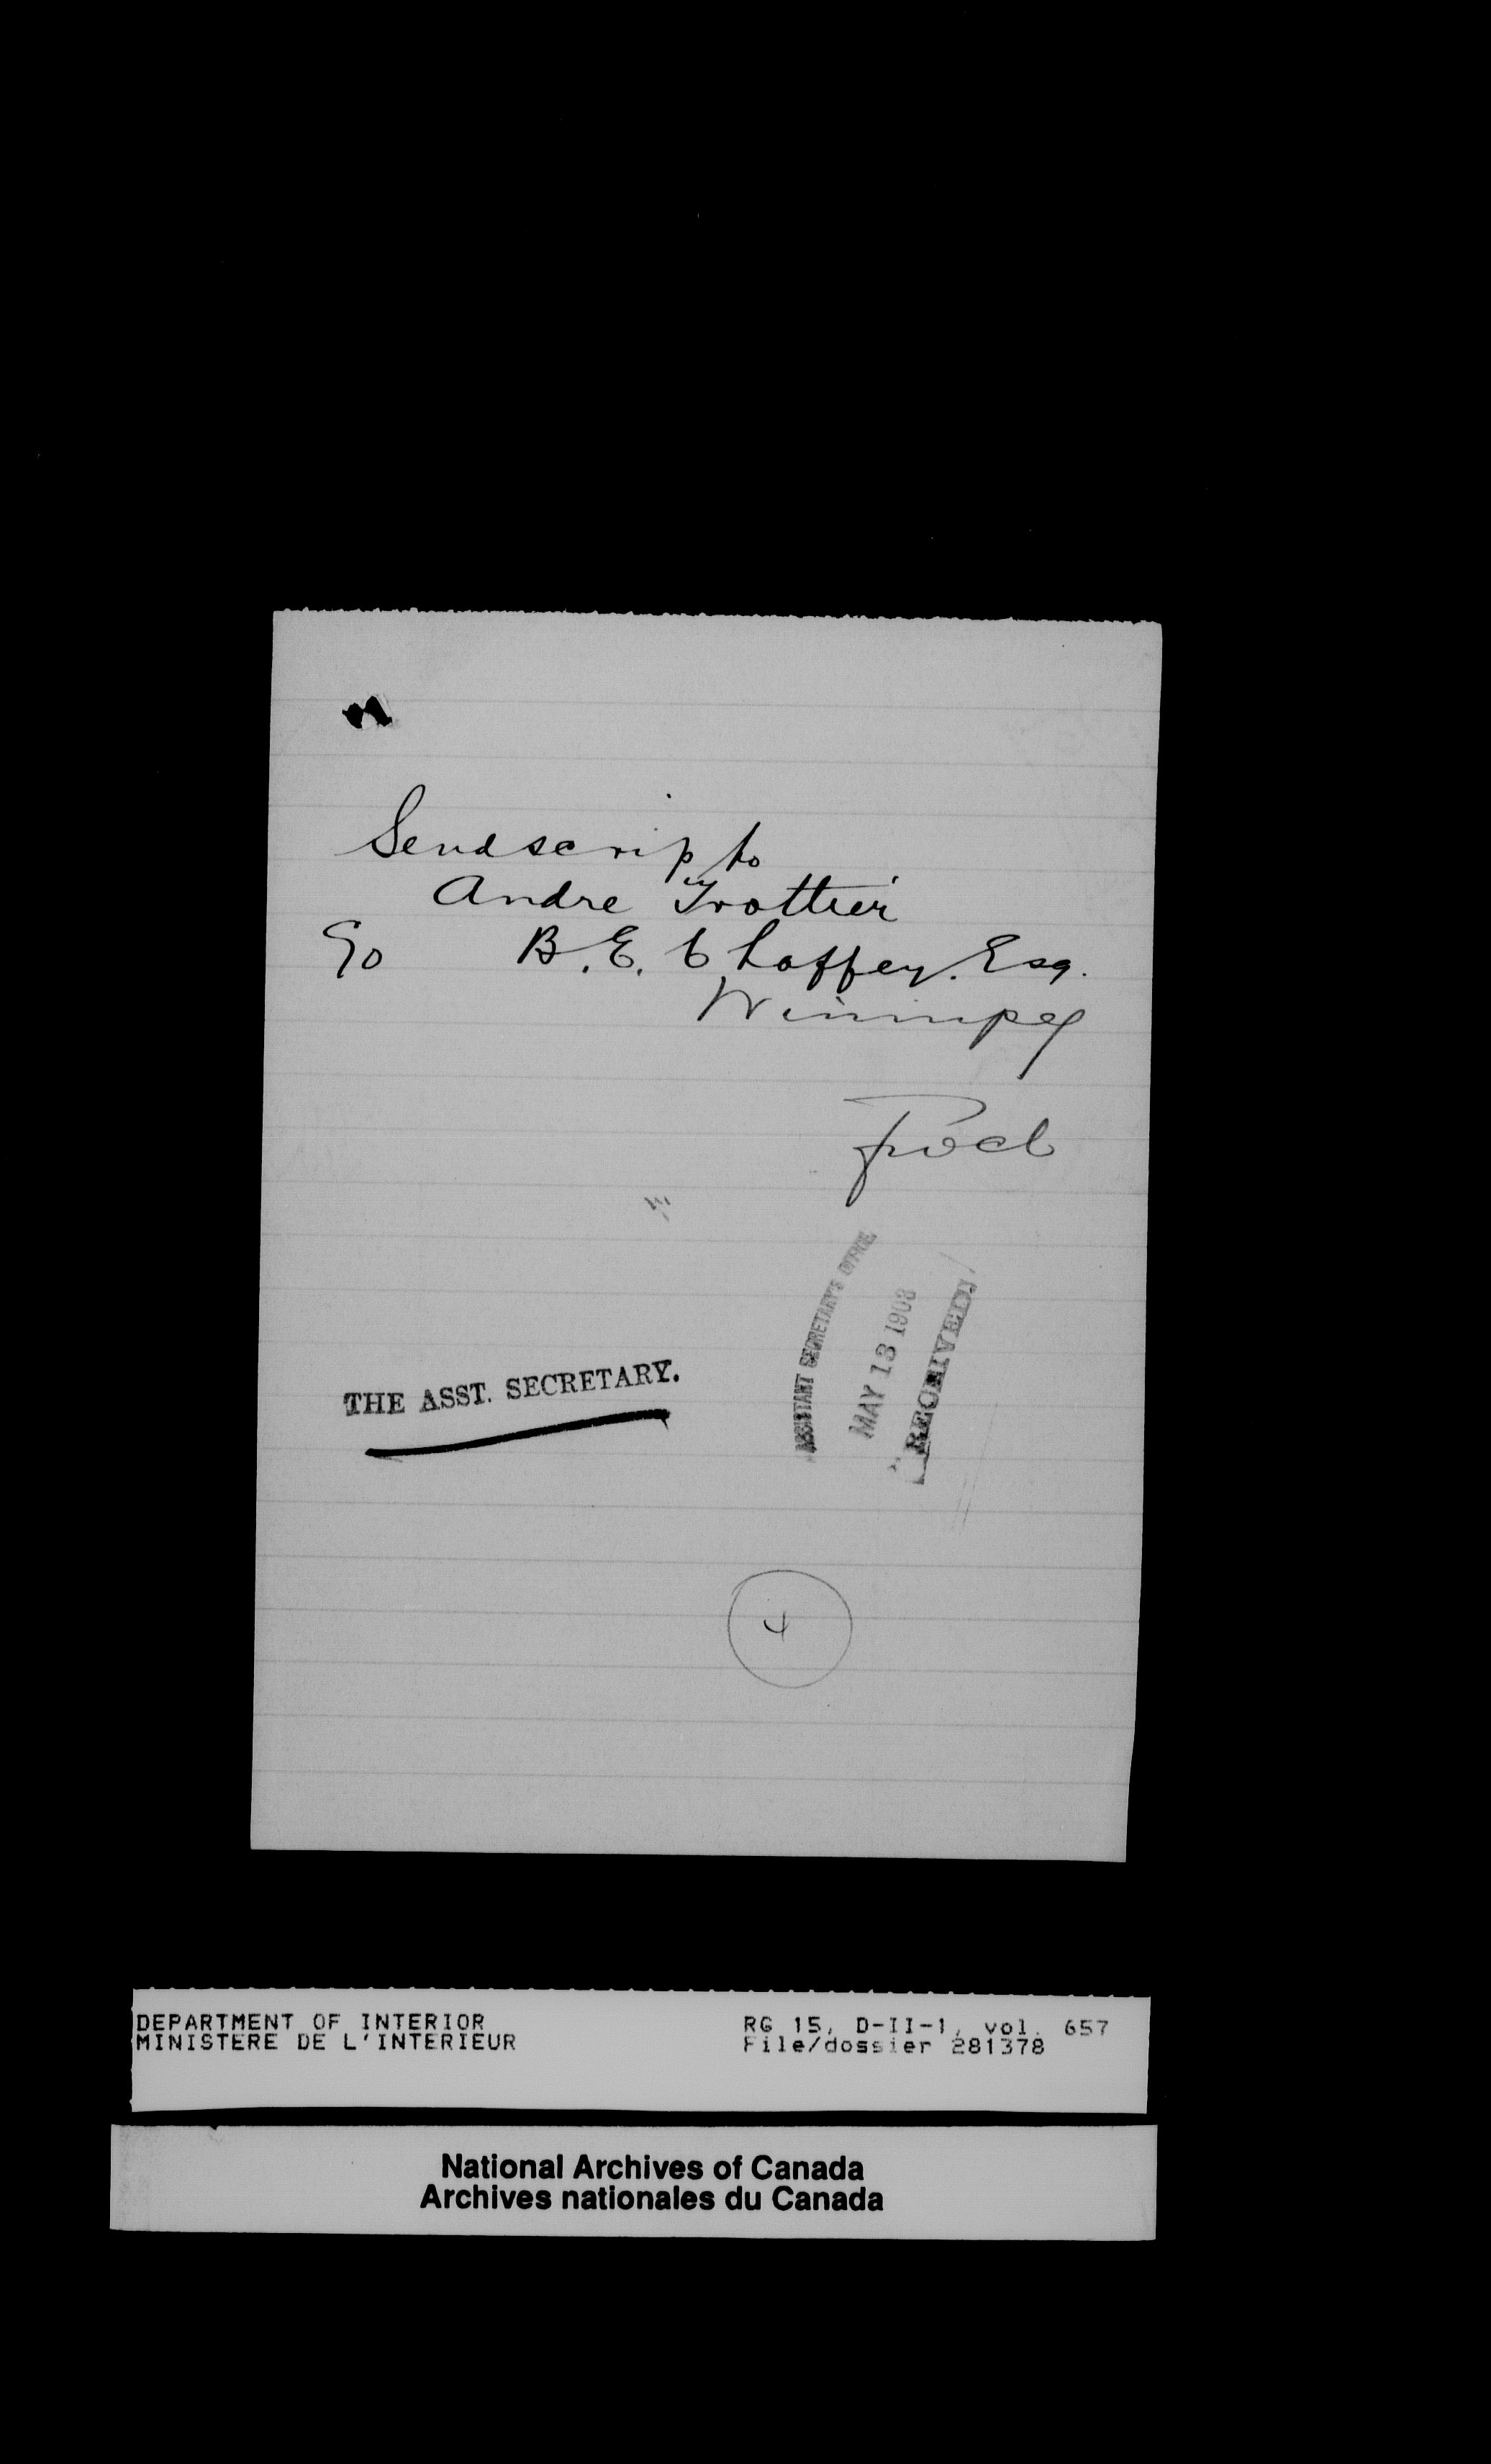 Send scrip to
Andre Trottier
Go B.E. Chaffey. Esq.
Winnipeg
ASSISTANT SECRETARY'S OFFICE
MAY 13 1908
RECEIVED
THE ASST. SECRETARY.
4
DEPARTMENT OF INTERIOR
MINISTERE DE L'INTERIEUR
RG 15, D-II-1, vol. 657
File/dossier 281378
National Archives of Canada
Archives nationales du Canada